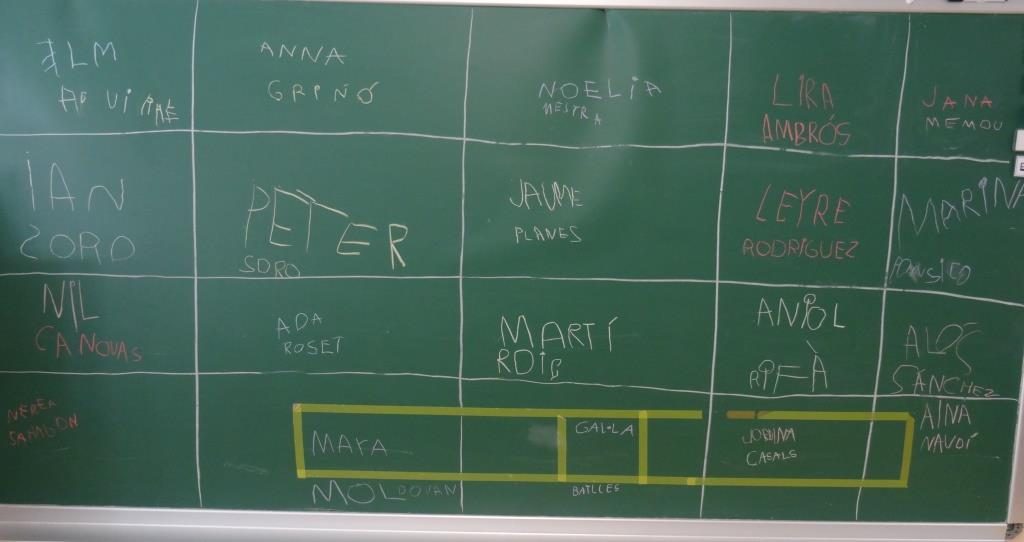 ANNA
GRIÑÓ
NOELIA
MESTRA
LIRA
AMBRÓS
JANA
MEMOU
IAN
SORO
PETER
SORO
JAUME
PLANES
LEYRE
RODRIGUEZ
MARINA
NIL
CANOVAS
ADA
ROSET
MARTÍ
ROIG
ANIOL
RIFÀ
SÁNCHEZ
NEREA
MAYA
MOLDOVAN
GAL·LA
BATLLES
JORDINA
CASALS
AINA